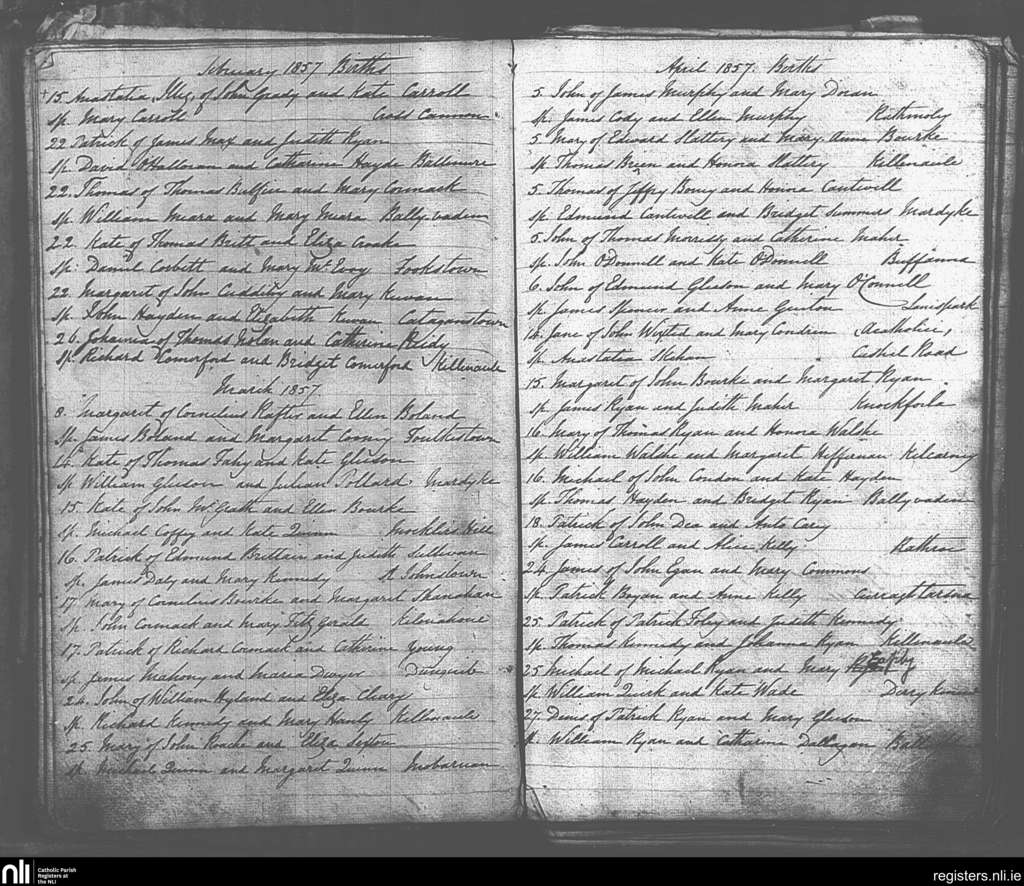 February 1857 Births
15 Anastatia, Illeg. of John Grady and Kate Carroll
sp. Mary Carroll Cross Cannon
22 Patrick of James Max and Judith Ryan
sp. David O'Halloran and Catharine Hayde
22. Thomas of Thomas and Mary Cormack
sp. William Meara and Mary Meara Ballyvaden
22. Kate of Thomas Britt and Eliza Croake
sp. Daniel Corbett and Mary McEvoy Fookstown
22. Margaret of John Cuddihy and Mary Kuvan
sp. John Hayden and Elizabeth Kevan
26. Johanna of Thomas Nolan and Catherine
sp. Richard Comerford and Bridget Comerford Killenaule
March 1857
8. Margaret of Cornelius Rafter and Ellen Boland
sp. James Boland and Margaret Cooney
Kate of Thomas Fahy and Kate Gleeson
sp William Gleeson and Julian Pollard. Mardyke
15. Kate of John McGrath and Ellen Bourke
sp. Michael Coffey and Kate Quinn Mocklers Hill
16. Patrick of Edmund Brittain and Judith Sullivan
sp. James Daly and Mary Kennedy St Johnstown
17 Mary of Cornelius Bourke and Margaret Shanahan
sp. John Cormack and Mary FitzGerald
17. Patrick of Richard Cormack and Catherine Young
sp James Mahony and Maria Dwyer
24. John of William Hyland and Eliza Cleary
sp. Richard Kennedy and Mary Hanly Killenaule
25. Mary of John Roache and Eliza Sexton
sp. Michael Quinn and Margaret Quinn Mobarnan
April 1857. Births
5. John of James Murphy and Mary Doran
sp. James Cody and Ellen Murphy Rathmoly
5 Mary of Edward Slattery and Mary Anne Bourke
sp Thomas Breen and Honora Slattery Killenaule
5. Thomas of and Honora Cantwell
sp Edmund Cantwell and Bridget Summers Mardyke
5 John of Thomas Morrissy and Catherine Maher
sp. John O'Donnell and Kate O'Donnell Buffanna
6. John of Edmund Gleeson and Mary O'Connell
sp James Spencer and Anne Lanespark
Jane of John and Mary Condren Acatholici,
sp Anastatia Skehan Cashel Road
15. Margaret of John Bourke and Margaret Ryan
sp. James Ryan and Judith Maher Knockforla
16. Mary of Thomas Ryan and Honora Walshe
sp William Walshe and Margaret Heffernan
16. Michael of John Condon and Kate Hayden
sp. Thomas Hayden and Bridget Ryan Ballyvaden
18. Patrick of John Dea and Carey
sp. James Carroll and Alice Kelly.
24. James of John Egan and Mary Commons
sp Patrick Bryan and Anne Kelly Curraghtarsna
25. Patrick of Patrick Foley and Judith Kennedy
sp. Thomas Kennedy and Johanna Ryan Killenaule
25 Michael of Michael Ryan and Mary
sp William Quirk and Kate Wade
27. Denis of Patrick Ryan and Mary Gleeson
sp. William Ryan and Catharine Dallagan
nli
Catholic Parish
Registers at
the NLI
registers.nli.ie